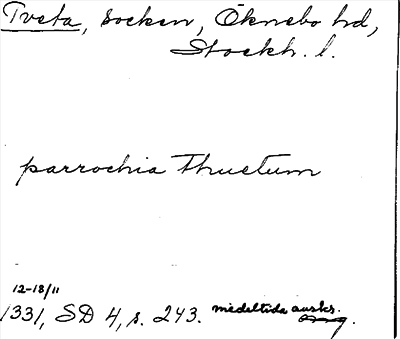 Tveta, socken, Öknebo hd,
Stockh. l.
parrochia Thuetum
12-18/11
1331, SD 4, s. 243. medeltida avskr.